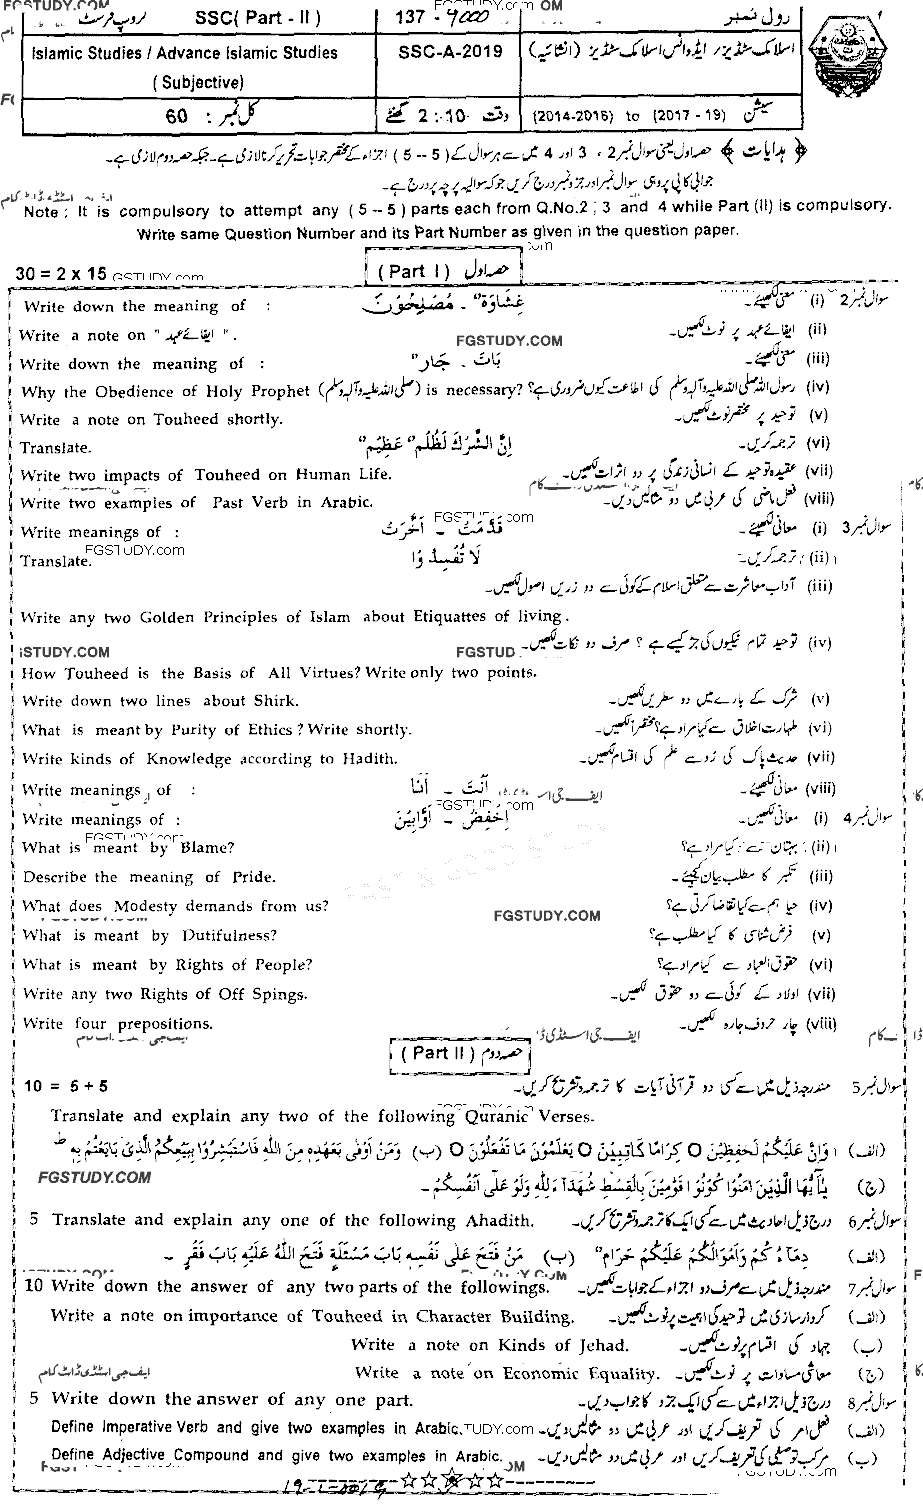 FGSTUDY.COM FGSTUDY.com OM
رول نمبر 137 - 4000 SSC( Part - II ) پیپر فرسٹ
اسلامک سٹڈیز/ ایڈوانس اسلامک سٹڈیز (انشائیہ) SSC-A-2019 Islamic Studies / Advance Islamic Studies
( Subjective)
سیشن (2014-2016) to (2017 - 19) وقت 2:10 گھنٹے کل نمبر : 60
﴿ ہدایات ﴾ حصہ اول یعنی سوال نمبر 2 ، 3 اور 4 میں سے ہر سوال کے ( 5 -- 5 ) اجزاء کے مختصر جوابات تحریر کرنا لازمی ہے۔ جبکہ حصہ دوم لازمی ہے۔
جوابی کاپی پر وہی سوال نمبر اور جزو نمبر درج کریں جو کہ سوالیہ پرچہ پر درج ہے۔
Note : It is compulsory to attempt any ( 5 -- 5 ) parts each from Q.No.2 ; 3 and 4 while Part (II) is compulsory.
Write same Question Number and its Part Number as given in the question paper.
30 = 2 x 15 FGSTUDY.com (Part I ) حصہ اول
Write down the meaning of : غِشَاوَۃٌ ۔ مُصْلِحُوْنَ سوال نمبر 2 (i) معنی لکھیئے۔
Write a note on " ایفائے عہد ". (ii) ایفائے عہد پر نوٹ لکھیں۔
FGSTUDY.COM
Write down the meaning of : بَاتَ ۔ جَارٌ (iii) معنی لکھیئے۔
Why the Obedience of Holy Prophet (صلی اللہ علیہ وآلہ وسلم) is necessary? (iv) رسول اللہ صلی اللہ علیہ وآلہ وسلم کی اطاعت کیوں ضروری ہے؟
Write a note on Touheed shortly. (v) توحید پر مختصر نوٹ لکھیں۔
Translate. اِنَّ الشِّرْكَ لَظُلْمٌ عَظِيْمٌ (vi) ترجمہ کریں۔
Write two impacts of Touheed on Human Life. (vii) عقیدہ توحید کے انسانی زندگی پر دو اثرات لکھیں۔
Write two examples of Past Verb in Arabic. (viii) فعل ماضی کی عربی میں دو مثالیں دیں۔
FGSTUDY.com
Write meanings of : قَدَّمَتْ ۔ اَخَّرَتْ سوال نمبر 3 (i) معانی لکھیئے۔
FGSTUDY.com
Translate. لَا تُفْسِدُوْا (ii) ترجمہ کریں۔
(iii) آداب معاشرت سے متعلق اسلام کے کوئی سے دو زریں اصول لکھیں۔
Write any two Golden Principles of Islam about Etiquattes of living.
(iv) توحید تمام نیکیوں کی جڑ کیسے ہے ؟ صرف دو نکات لکھیں۔ FGSTUD iSTUDY.COM
How Touheed is the Basis of All Virtues? Write only two points.
Write down two lines about Shirk. (v) شرک کے بارے میں دو سطریں لکھیں۔
What is meant by Purity of Ethics ? Write shortly. (vi) طہارت اخلاق سے کیا مراد ہے؟ مختصراً لکھیں۔
Write kinds of Knowledge according to Hadith. (vii) حدیث پاک کی رُو سے علم کی اقسام لکھیں۔
Write meanings of : اَنْتَ ۔ اَنَا (viii) معانی لکھیئے۔
FGSTUDY.com
Write meanings of : اِخْفِضْ ۔ اَوَّابِيْنَ سوال نمبر 4 (i) معانی لکھیں۔
FGSTUDY.com
What is meant by Blame? (ii) بہتان سے کیا مراد ہے؟
Describe the meaning of Pride. (iii) تکبر کا مطلب بیان کیجئے۔
What does Modesty demands from us? (iv) حیا ہم سے کیا تقاضا کرتی ہے؟
FGSTUDY.COM
What is meant by Dutifulness? (v) فرض شناسی کا کیا مطلب ہے؟
What is meant by Rights of People? (vi) حقوق العباد سے کیا مراد ہے؟
Write any two Rights of Off Spings. (vii) اولاد کے کوئی سے دو حقوق لکھیں۔
Write four prepositions. (viii) چار حروف جارہ لکھیں۔
( Part II ) حصہ دوم
10 = 5 + 5 سوال نمبر 5 مندرجہ ذیل میں سے کسی دو قرآنی آیات کا ترجمہ و تشریح کریں۔
Translate and explain any two of the following Quranic Verses.
(الف) وَاِنَّ عَلَيْكُمْ لَحٰفِظِيْنَ O كِرَامًا كَاتِبِيْنَ O يَعْلَمُوْنَ مَا تَفْعَلُوْنَ O (ب) وَمَنْ اَوْفٰى بِعَهْدِهٖ مِنَ اللّٰهِ فَاسْتَبْشِرُوْا بِبَيْعِكُمُ الَّذِىْ بَايَعْتُمْ بِهٖ ط
FGSTUDY.COM
(ج) يٰٓاَيُّهَا الَّذِيْنَ اٰمَنُوْا كُوْنُوْا قَوّٰمِيْنَ بِالْقِسْطِ شُهَدَآءَ لِلّٰهِ وَلَوْ عَلٰٓى اَنْفُسِكُمْ ۔
5 Translate and explain any one of the following Ahadith. سوال نمبر 6 درج ذیل احادیث میں سے کسی ایک کا ترجمہ و تشریح کریں۔
(الف) دِمَآءُ كُمْ وَاَمْوَالُكُمْ عَلَيْكُمْ حَرَامٌ (ب) مَنْ فَتَحَ عَلٰى نَفْسِهٖ بَابَ مَسْئَلَةٍ فَتَحَ اللّٰهُ عَلَيْهِ بَابَ فَقْرٍ ۔
10 Write down the answer of any two parts of the followings. سوال نمبر 7 مندرجہ ذیل میں سے صرف دو اجزاء کے جوابات لکھیں۔
Write a note on importance of Touheed in Character Building. (الف) کردار سازی میں توحید کی اہمیت پر نوٹ لکھیں۔
Write a note on Kinds of Jehad. (ب) جہاد کی اقسام پر نوٹ لکھیں۔
ایف جی اسٹڈی ڈاٹ کام Write a note on Economic Equality. (ج) معاشی مساوات پر نوٹ لکھیں۔
5 Write down the answer of any one part. سوال نمبر 8 درج ذیل اجزاء میں سے کسی ایک جزو کا جواب دیں۔
Define Imperative Verb and give two examples in Arabic. TUDY.com (الف) فعل امر کی تعریف کریں اور عربی میں دو مثالیں دیں۔
Define Adjective Compound and give two examples in Arabic. (ب) مرکب توصیفی کی تعریف کریں اور عربی میں دو مثالیں دیں۔